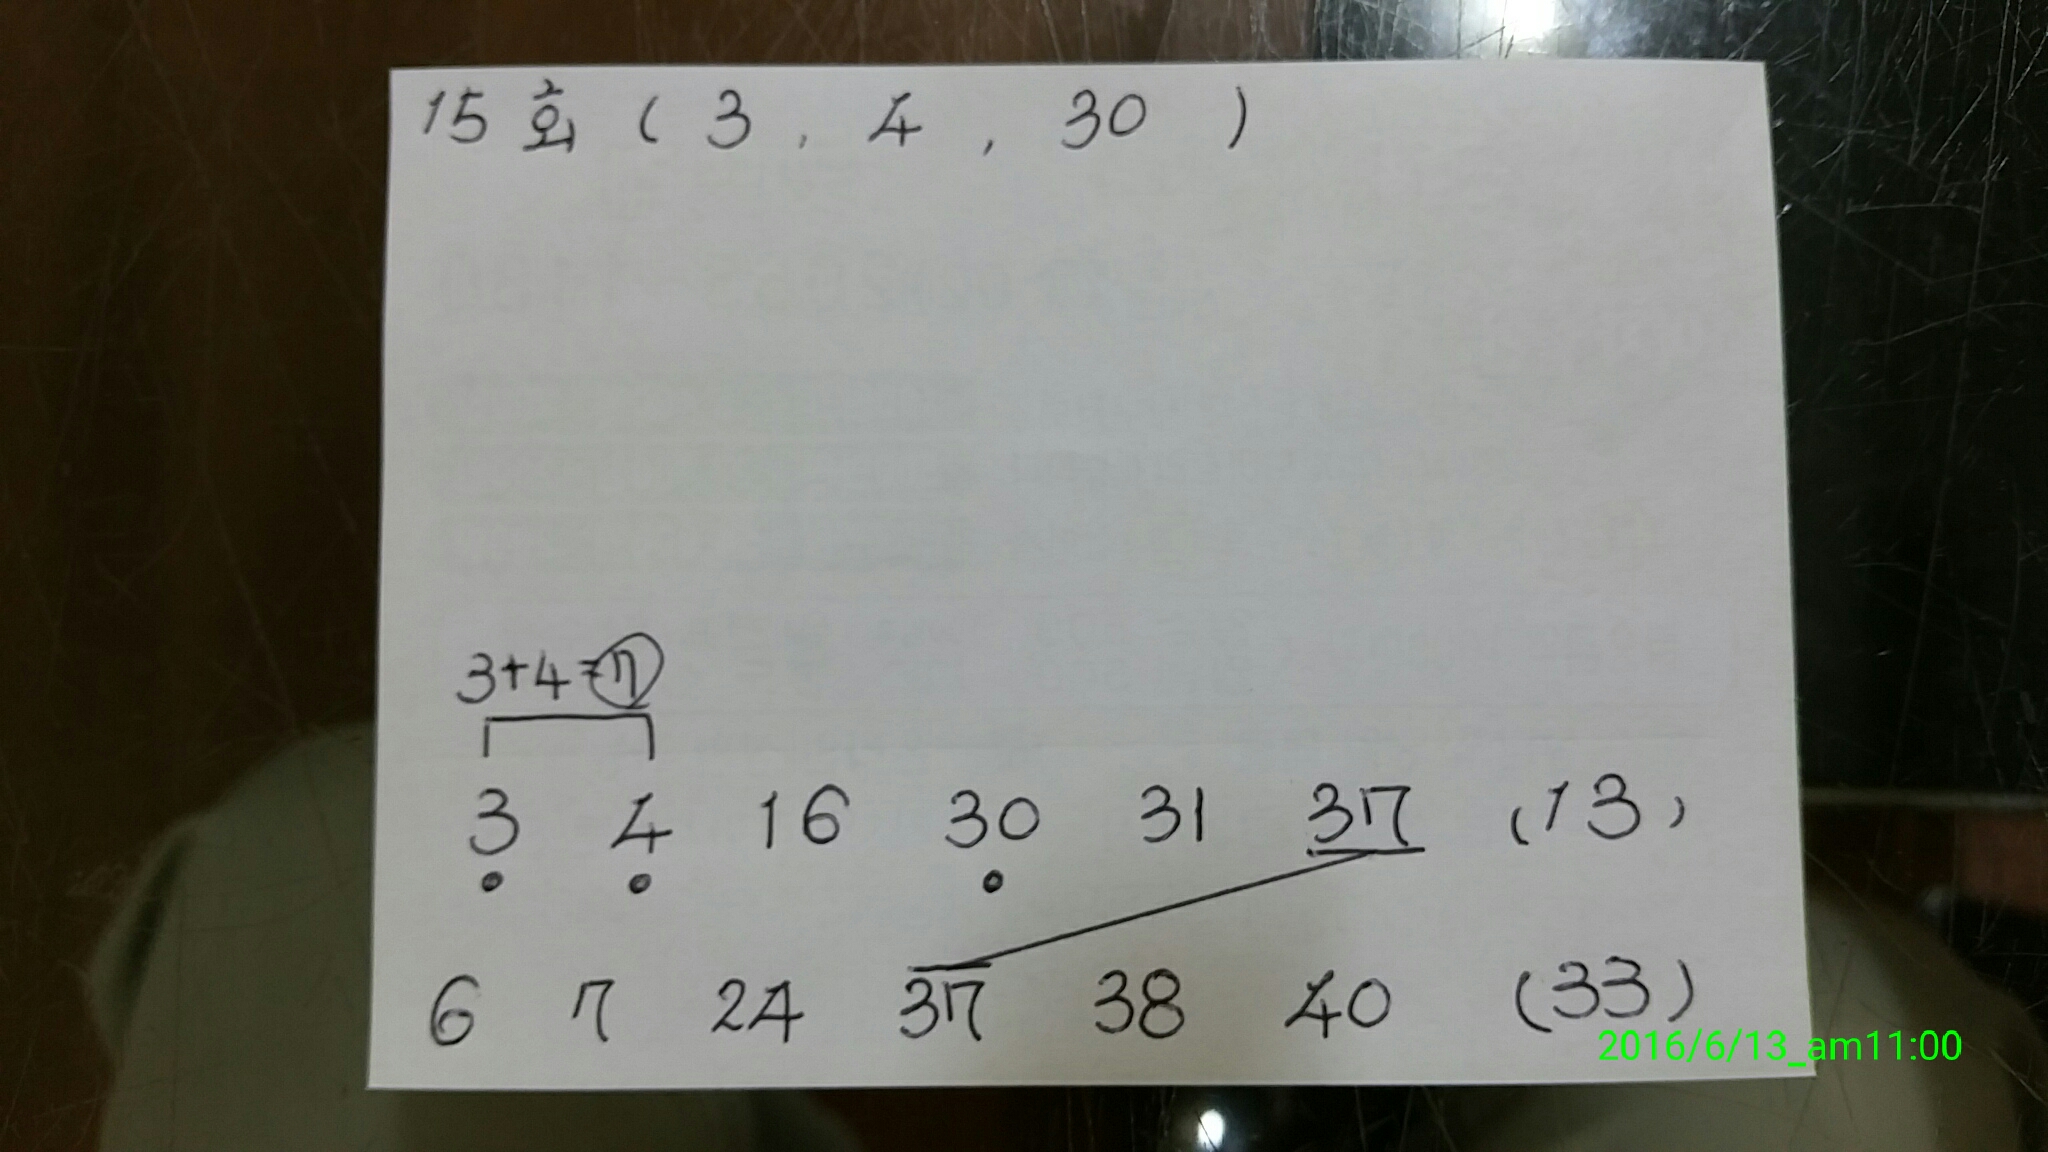 15회 ( 3 , 4 , 30 )
3+4=7
3 4 16 30 31 37 (13)
6 7 24 37 38 40 (33)
2016/6/13_am11:00